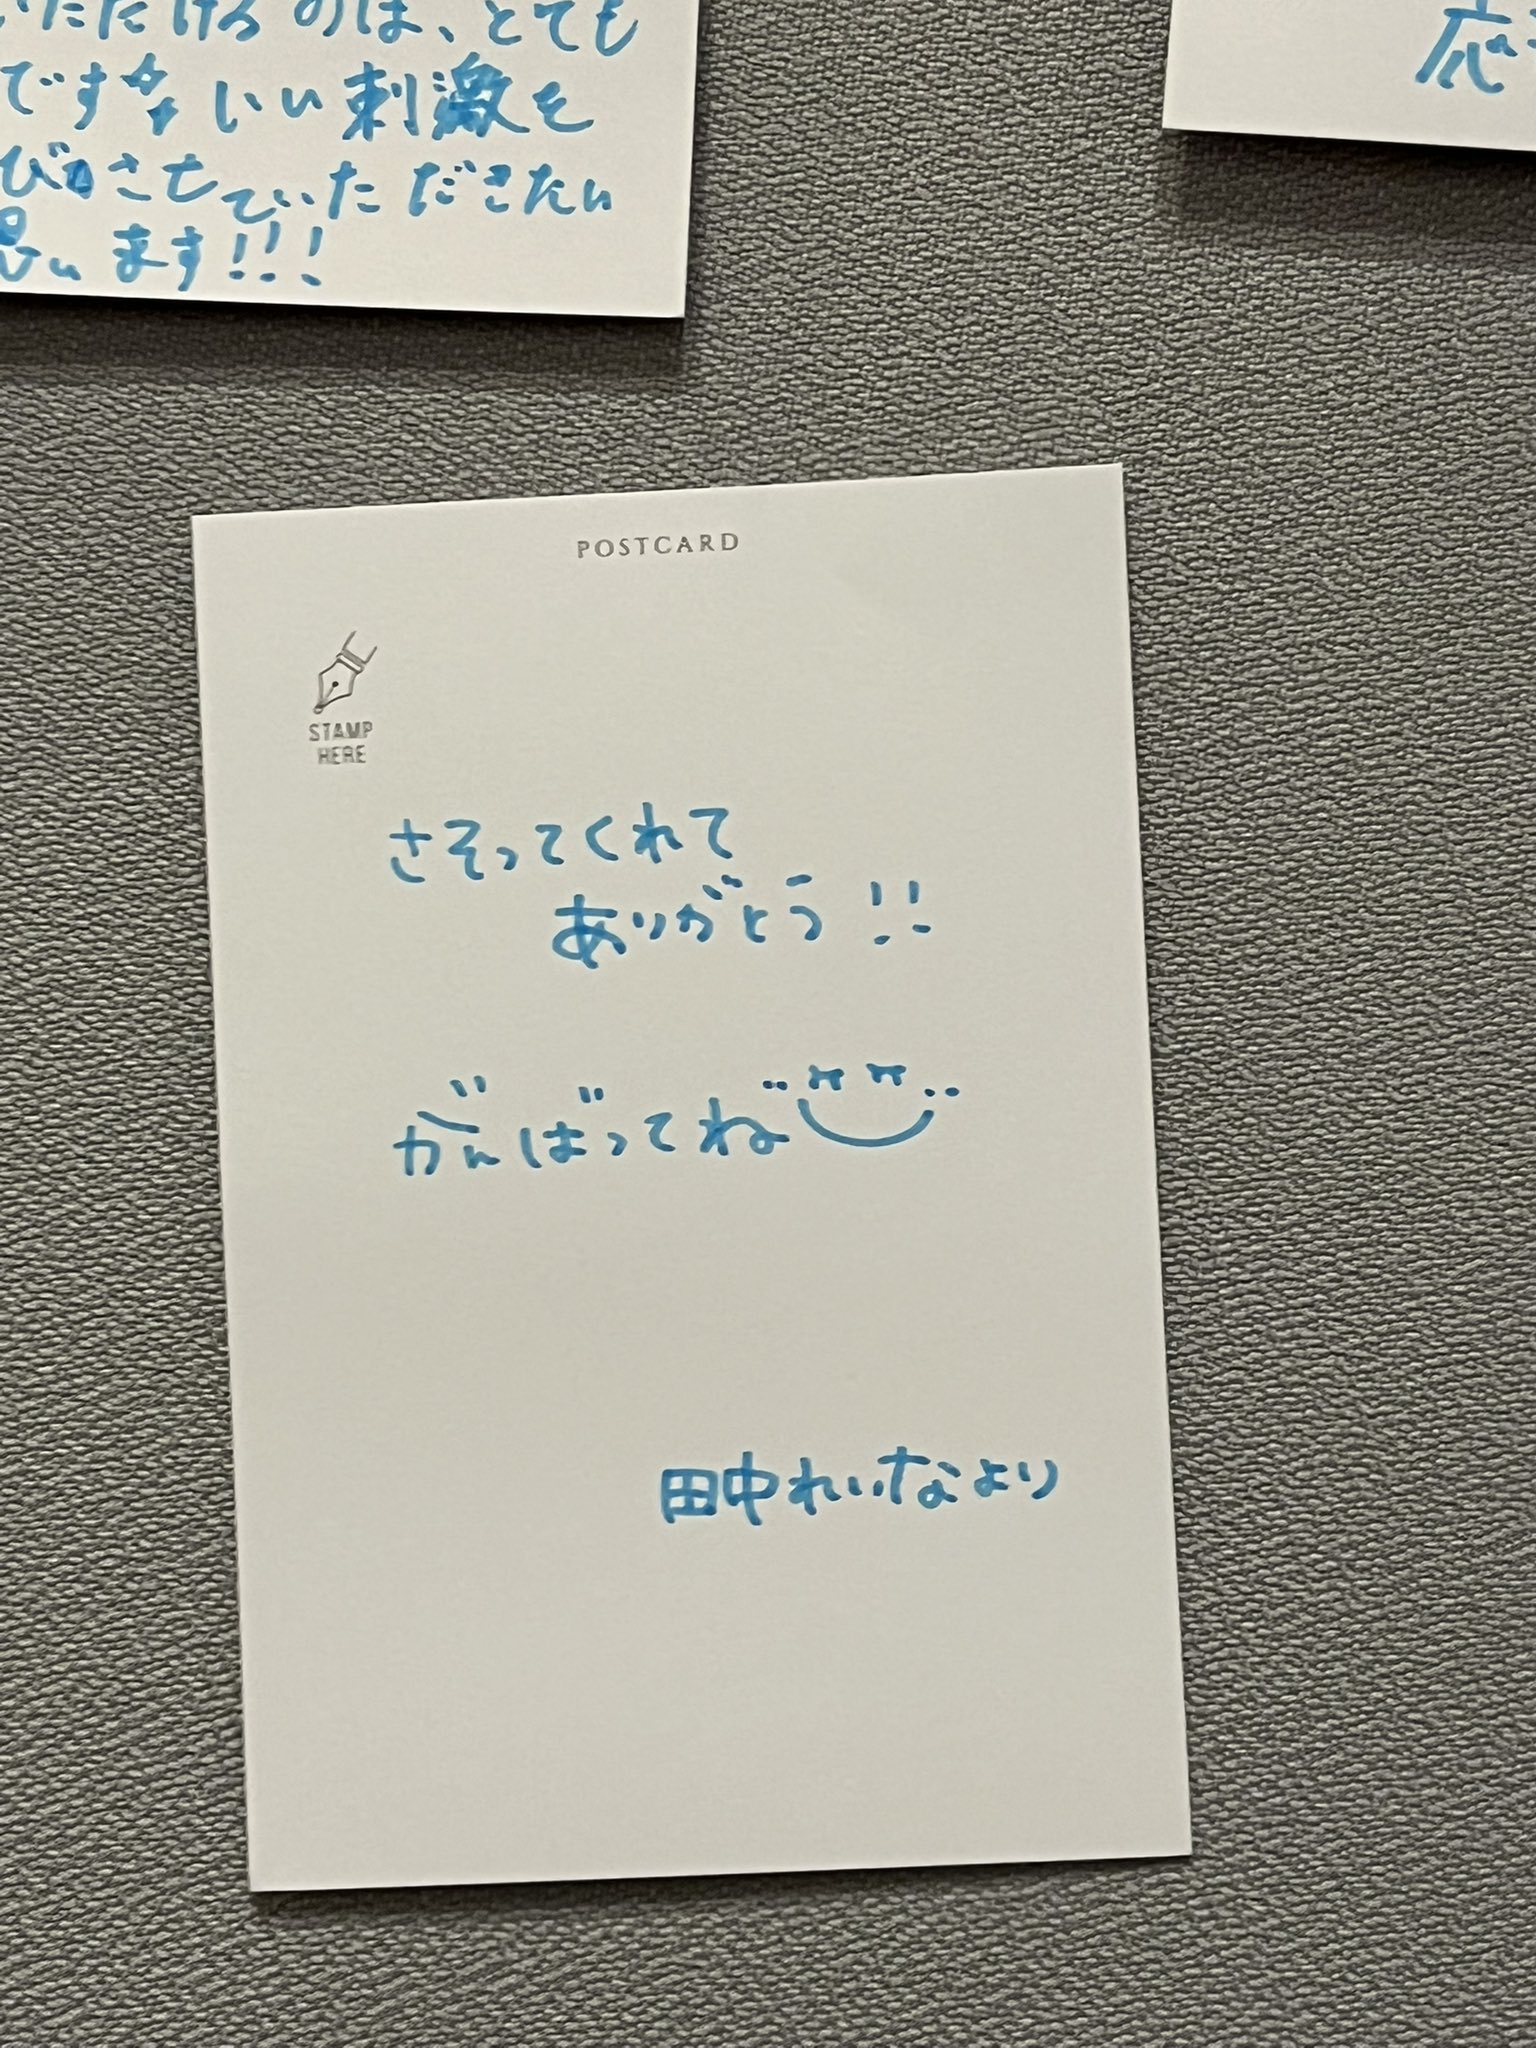 ただけるのは、とても
です いい刺激を
びさせていただきたい
思います!!!
応
POSTCARD
STAMP
HERE
さそってくれて
ありがとう!!
がんばってね
田中れいなより